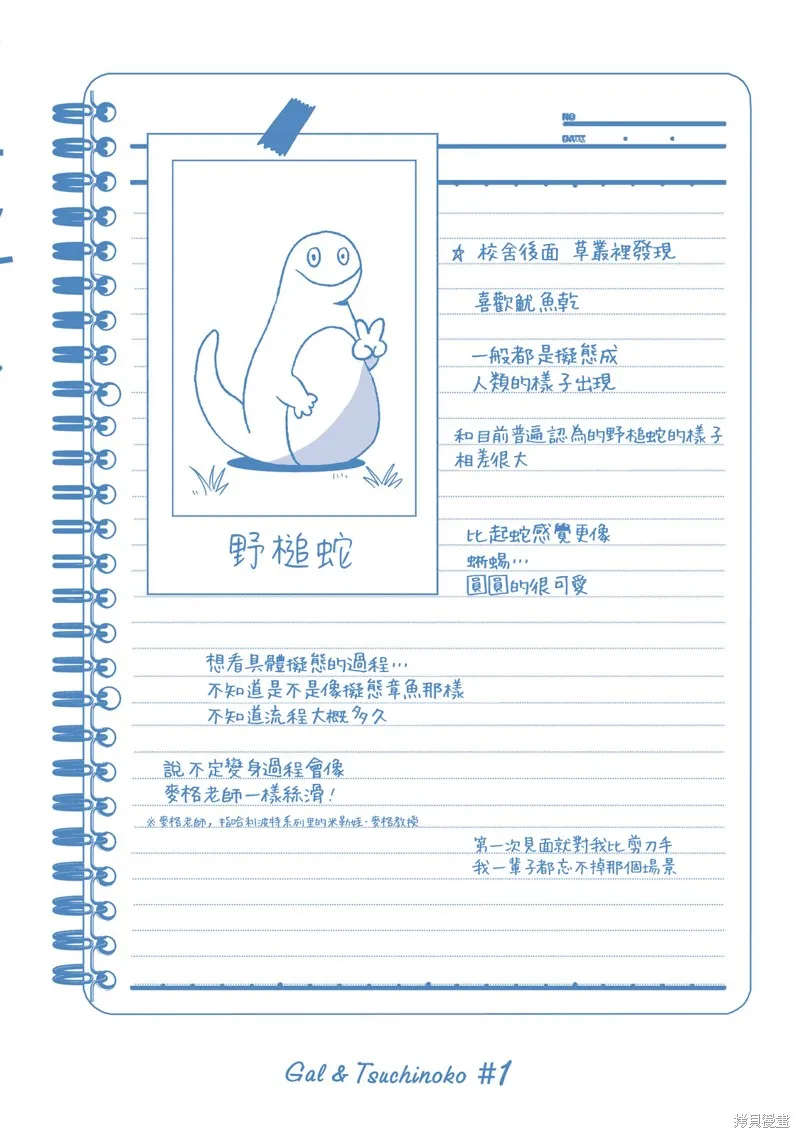 NO
DATE
☆ 校舍後面 草叢裡發現
喜歡魷魚乾
一般都是擬態成
人類的樣子出現
和目前普遍認為的野槌蛇的樣子
相差很大
野槌蛇
比起蛇感覺更像
蜥蜴…
圓圓的很可愛
想看具體擬態的過程…
不知道是不是像擬態章魚那樣
不知道流程大概多久
說不定變身過程會像
麥格老師一樣絲滑！
※麥格老師，指哈利波特系列里的米勒娃·麥格教授
第一次見面就對我比剪刀手
我一輩子都忘不掉那個場景
Gal & Tsuchinoko #1
拷貝漫畫